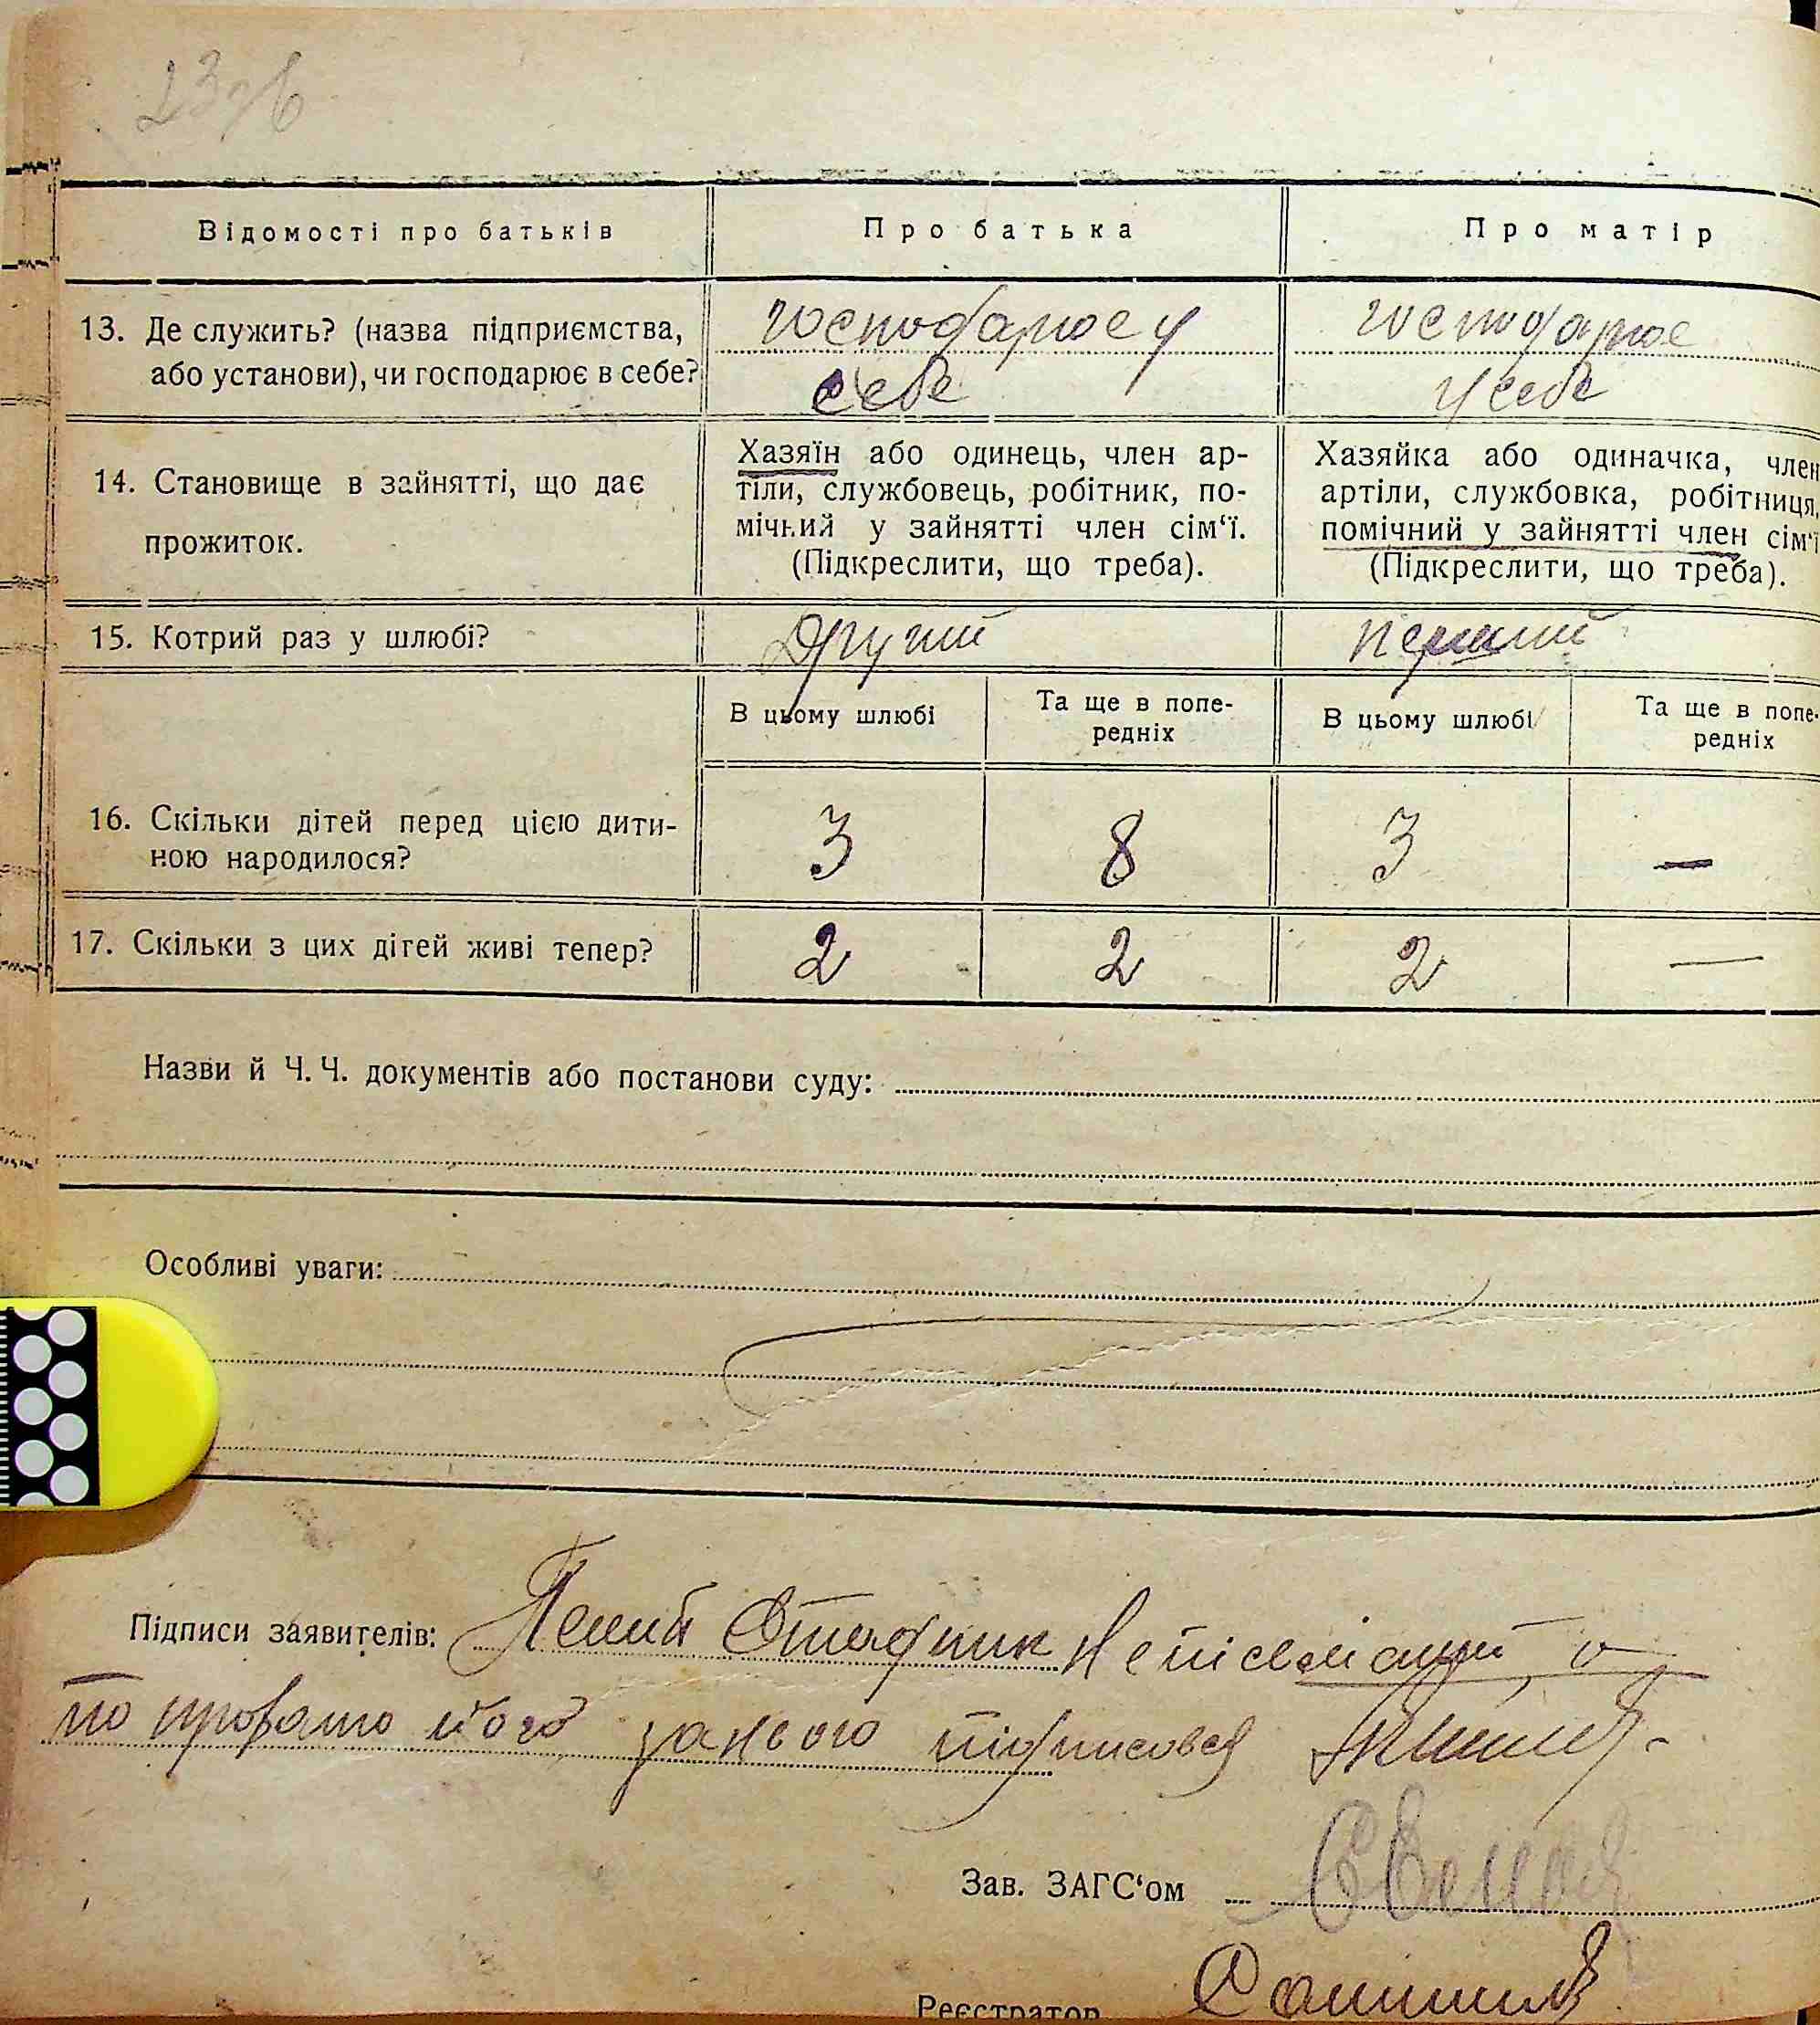 23зв
Відомості про батьків
Про батька
Про матір
13. Де служить? (назва підприємства,
або установи), чи господарює в себе?
господарює у
себе
господарює
у себе
14. Становище в зайнятті, що дає
прожиток.
Хазяїн або одинець, член ар-
тіли, службовець, робітник, по-
мічний у зайнятті член сім‘ї.
(Підкреслити, що треба).
Хазяйка або одиначка, член
артіли, службовка, робітниця,
помічний у зайнятті член сім‘ї
(Підкреслити, що треба).
15. Котрий раз у шлюбі?
Другий
перший
В цьому шлюбі
Та ще в попе-
редніх
В цьому шлюбі
Та ще в попе-
редніх
16. Скільки дітей перед цією дити-
ною народилося?
3
8
3
—
17. Скільки з цих дітей живі тепер?
2
2
2
—
Назви й Ч. Ч. документів або постанови суду:
Особливі уваги:
Підписи заявителів:
Неписьмений, а
по проханю його за нього підписався
Зав. ЗАГС‘ом
Реєстратор